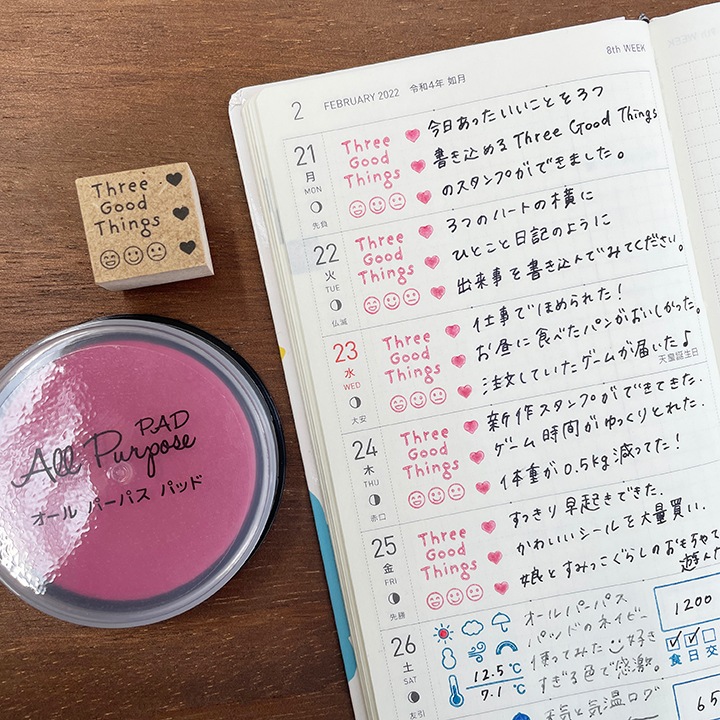 8th WEEK
2 FEBRUARY 2022 令和4年 如月
21
月
MON
先負
Three
Good
Things
今日あったいいことを3つ
書き込めるThree Good Things
のスタンプができました。
22
火
TUE
仏滅
Three
Good
Things
3つのハートの横に
ひとこと日記のように
出来事を書き込んでみてください。
23
水
WED
大安
Three
Good
Things
仕事でほめられた!
お昼に食べたパンがおいしかった。
注文していたゲームが届いた♪
天皇誕生日
24
木
THU
赤口
Three
Good
Things
新作スタンプができてきた.
ゲーム時間がゆっくりとれた.
体重が0.5kg減ってた!
25
金
FRI
先勝
Three
Good
Things
すっきり早起きできた.
かわいいシールを大量買い.
娘とすみっこぐらしのおもちゃで
遊んだ
26
土
SAT
友引
12.5℃
7.1℃
オールパーパス
パッドのネイビー
使ってみた 好き
すぎる色で感激。
天気と気温ログ
1200
食 日 交
65
Three
Good
Things
PAD
All Purpose
オール パーパス パッド